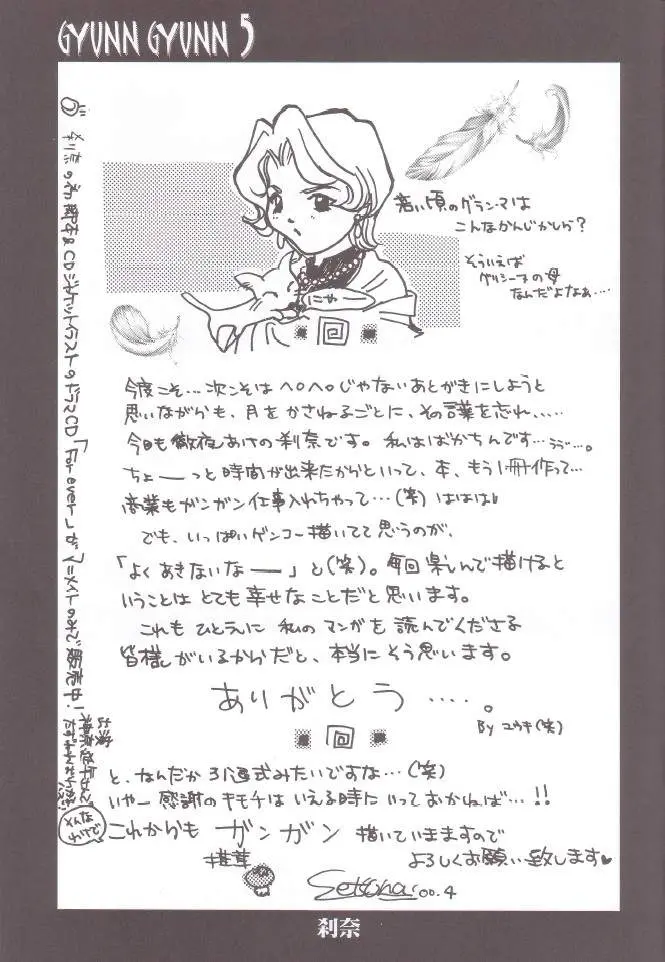 GYUNN GYUNN 5
若い頃のグランマは
こんなかんじかしら?
そういえば
グリシーヌの母
なんだよなぁ…
にゃ
今度こそ…次こそはヘロヘロじゃないあとがきにしようと
思いながらも、月をかさねるごとに、その言葉を忘れ、‥‥
今日も徹夜あけの刹奈です。私はばかちんです…ううっ…。
ちょーーっと時間が出来たからといって、本、もう1冊作って…
商業もガンガン仕事入れちゃって…(笑)ははは
でも、いっぱいゲンコー描いてて思うのが、
「よくあきないなーー」と(笑)。毎回楽しんで描けると
いうことはとても幸せなことだと思います。
これもひとえに私のマンガを読んでくださる
皆様がいるからだと、本当にそう思います。
ありがとう‥‥。
By ユウキ(笑)
と、なんだか引退式みたいですな…(笑)
いやー感謝のキモチはいえる時にいっておかねば…!!
これからもガンガン描いていきますので
よろしくお願い致します♥
Setsuna 00.4
刹奈のCDジャケットイラストのドラマCD「For ever～」がアニメイトのみで販売中!
そんな
かんじで
刹奈